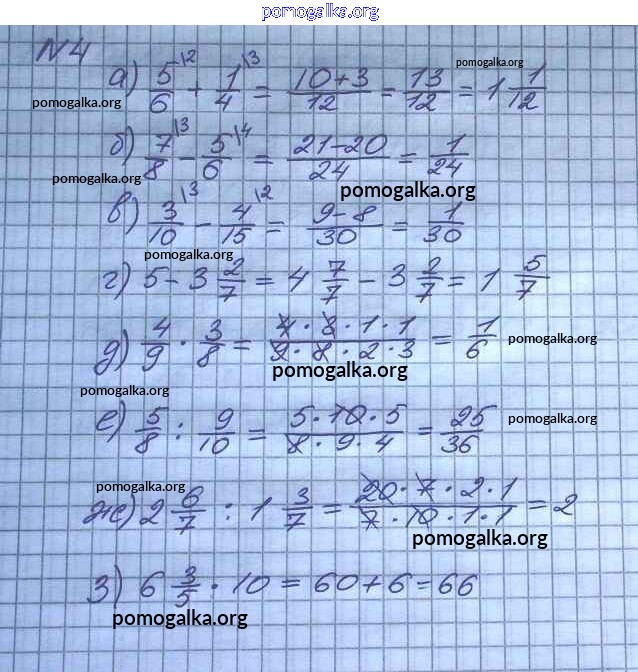 pomogalka.org
N 4
а) 5/6 \2 + 1/4 \3 = (10+3)/12 = 13/12 = 1 1/12
pomogalka.org
pomogalka.org
б) 7/8 \3 − 5/6 \4 = (21−20)/24 = 1/24
pomogalka.org
pomogalka.org
в) 3/10 \3 − 4/15 \2 = (9−8)/30 = 1/30
pomogalka.org
г) 5 − 3 2/7 = 4 7/7 − 3 2/7 = 1 5/7
д) 4/9 · 3/8 = (4·3·1·1)/(9·8·2·3) = 1/6
pomogalka.org
pomogalka.org
pomogalka.org
е) 5/8 : 9/10 = (5·10·5)/(8·9·4) = 25/36
pomogalka.org
pomogalka.org
pomogalka.org
ж) 2 6/7 : 1 3/7 = (20·7·2·1)/(7·10·1·1) = 2
pomogalka.org
з) 6 3/5 · 10 = 60+6 = 66
pomogalka.org